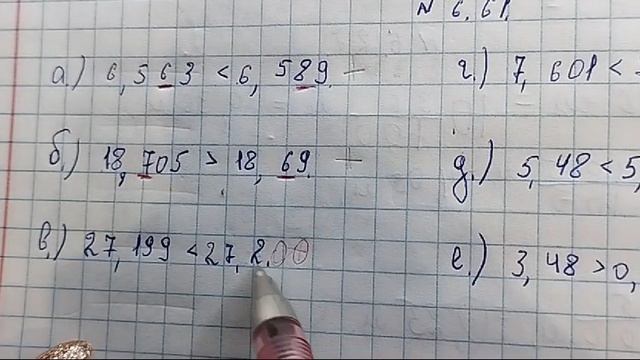 N 6.61.
а.) 6,563 < 6,589. г.) 7,601 <
б.) 18,705 > 18,69. д.) 5,48 < 5,
в.) 27,199 < 27,200 е.) 3,48 > 0,